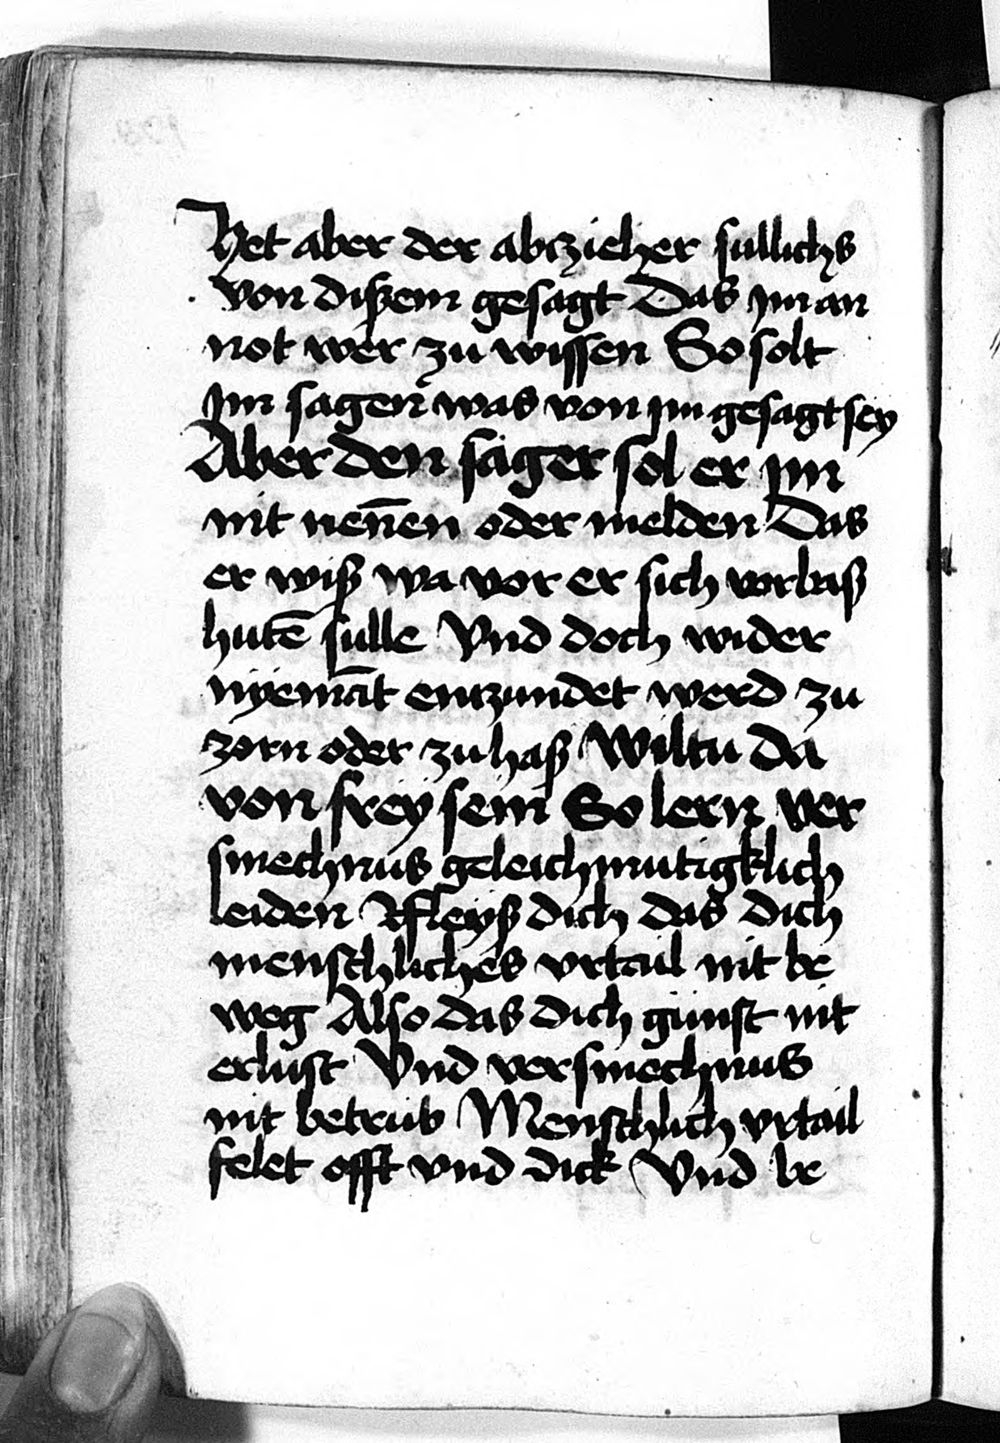 Het aber der abczieher sullichs
von dißem gesagt Das im an
not wer zu wissen So solt
im sagen was von im gesagt sey
Aber den sager sol er im
nit neñen oder melden Das
er wiß wa vor er sich vorbaß
hutē sulle Vnd doch wider
nyemāt entzundet werd zu
zorn oder zu haß Wiltu da
von frey sein So lern ver
smechnus geleichmutigklich
leiden Vfleyß dich das dich
menschliches vrtail nit be
weg Also das dich gunst nit
erlust Vnd versmechnus
nit betrub Menschlich vrtail
felet offt vnd dick Vnd be